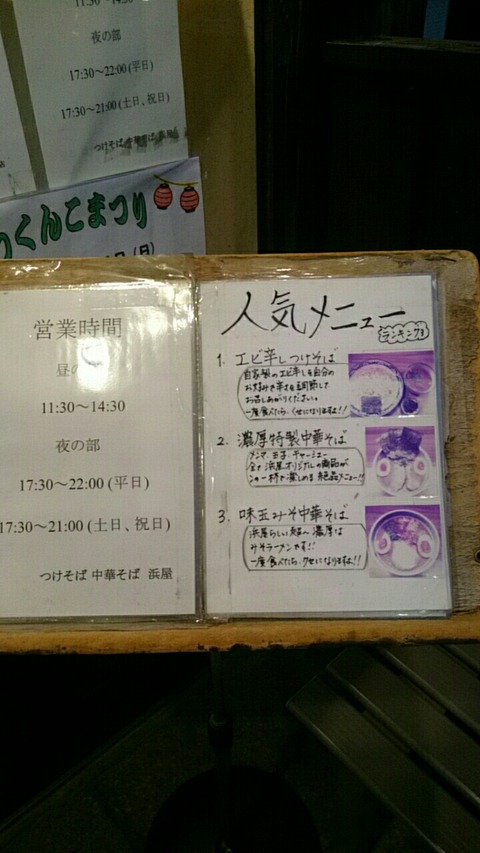 夜の部
17:30～22:00 (平日)
17:30～21:00 (土日、祝日)
つけそば 中華そば 浜屋
くんこまつり
(日)
営業時間
昼の
11:30～14:30
夜の部
17:30～22:00 (平日)
17:30～21:00 (土日、祝日)
つけそば 中華そば 浜屋
人気メニュー
ランキング
1. エビ辛しつけそば
自家製のエビ辛しを自分の
お好みや辛さを調節して
お召しあがりください。
一度食べたら、くせになりますよ!!
2. 濃厚特製中華そば
メンマ、玉子、チャーシュー
全て浜屋オリジナルの商品が
この一杯で楽しめる絶品メニュー!!
3. 味玉みそ中華そば
浜屋らしい超～濃厚な
みそラーメンです!!
一度食べたら、クセになりますよ!!